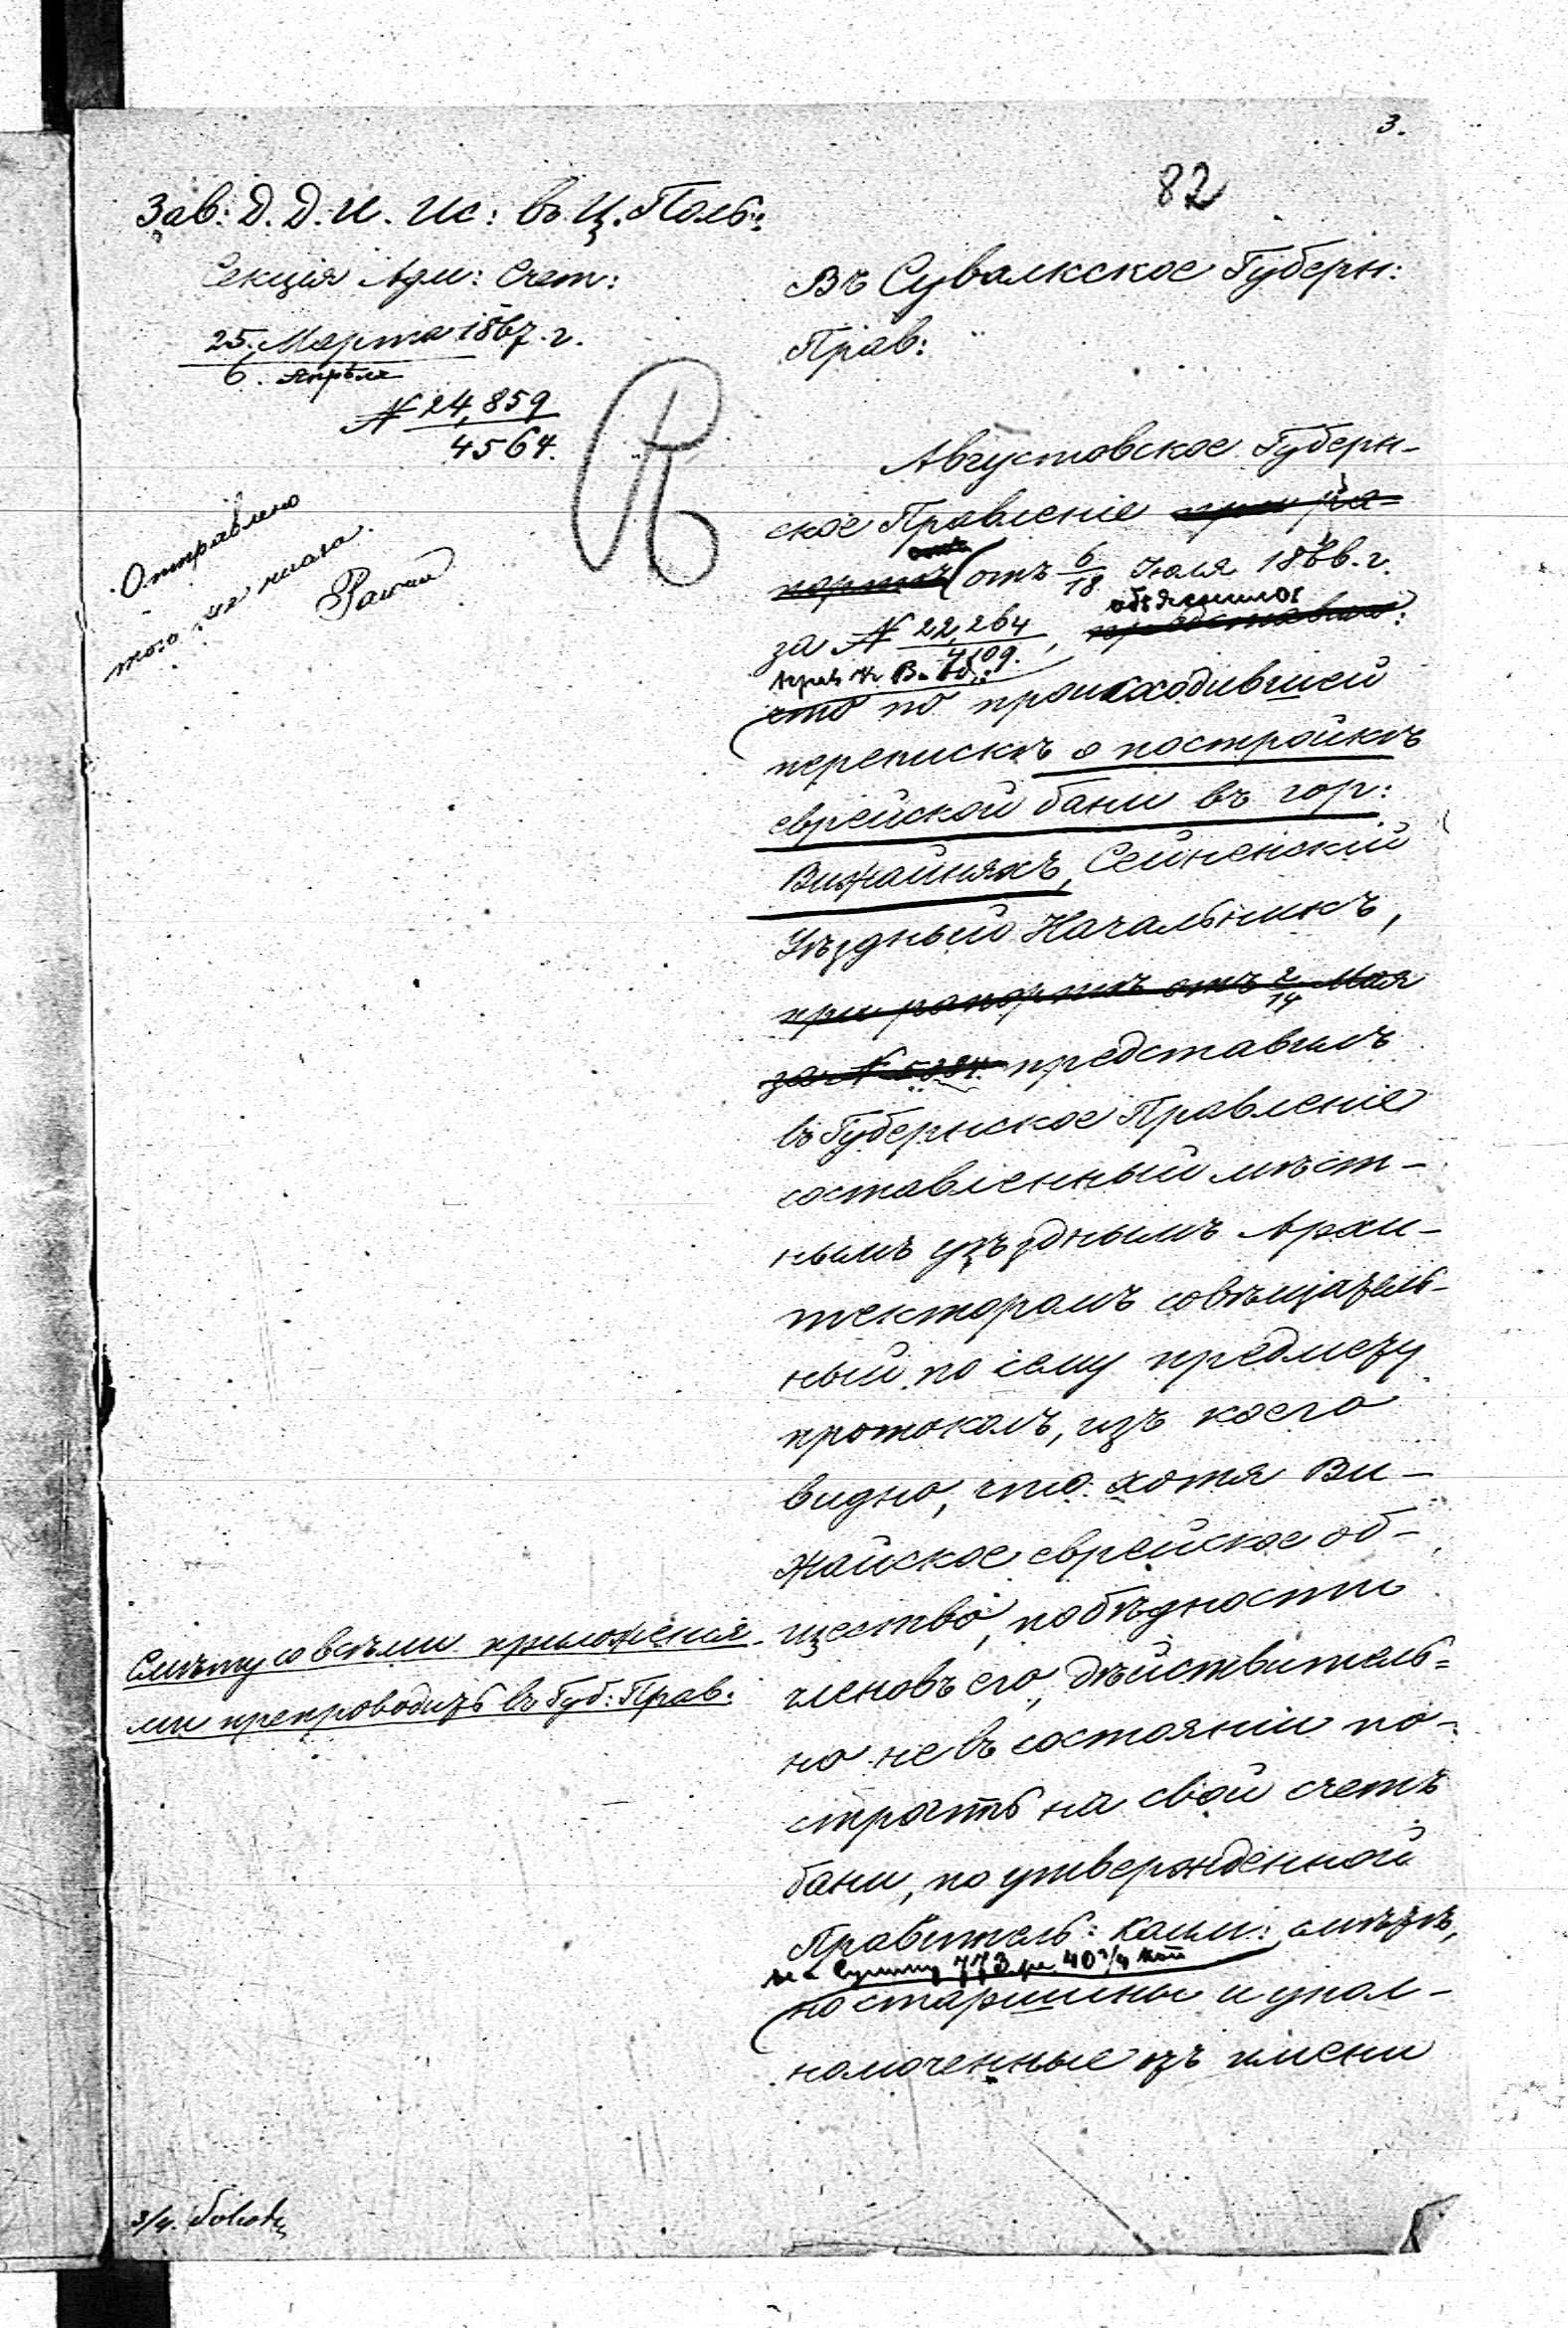 3.
82
Зав: Д. Д. И. Ис: въ Ц. Поль:
Секція Адм: Счет:
25 Марта 1867. г.
6. Апрѣля
№ 24,859
4564.
Отправлено
того же числа.
Въ Сувалкское Губерн:
Прав:
Августовское Губерн-
ское Правленіе при ра-
портѣ отъ 6/18 Іюля 1866. г.
объяснило
за № 22,264/4109, представило:
что по происходившей
перепискѣ о постройкѣ
еврейской бани въ гор:
Вижайняхъ, Сейненскій
Уѣздный Начальникъ,
при рапортѣ отъ 2/14 Мая
за № 5384 представилъ
въ Губернское Правленіе
составленный мѣст-
нымъ уѣзднымъ Архи-
текторомъ совѣщатель-
ный по сему предмету
протоколъ, изъ коего
видно, что хотя Ви-
жайское еврейское об-
щество, по бѣдности
членовъ его, дѣйствитель-
но не въ состояніи по-
строить на свой счетъ
бани, по утвержденной
Правитель: Комм: смѣтѣ,
на сумму 773 ру. 40 3/4 коп
но старшины и упол-
номоченные изъ имени
Смѣту со всѣми приложенія-
ми препроводить въ Губ: Прав:
3/4.